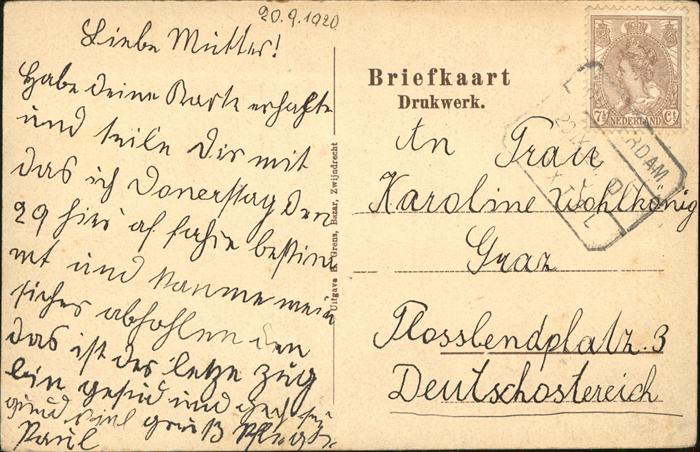 20.9.1920
Liebe Mutter!
Habe deine Karte erhalte
und teile Dir mit
das ich Donerstag den
29 hier af fahre bestim
mt und kanme mein
siches abhohlen den
das ist der letze zug
bin gesud und
gruß
Paul
Uitgave H. Grens, Bazar, Zwijndrecht
Briefkaart
Drukwerk.
7½ Ct
NEDERLAND
An Frau
Karoline Wohlkönig
Graz
Flosslendplatz. 3
Deutschostereich